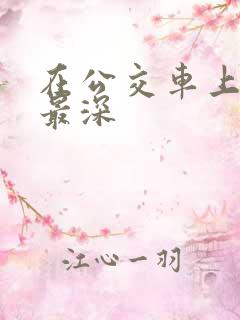 在公交車上
最深
江心一羽